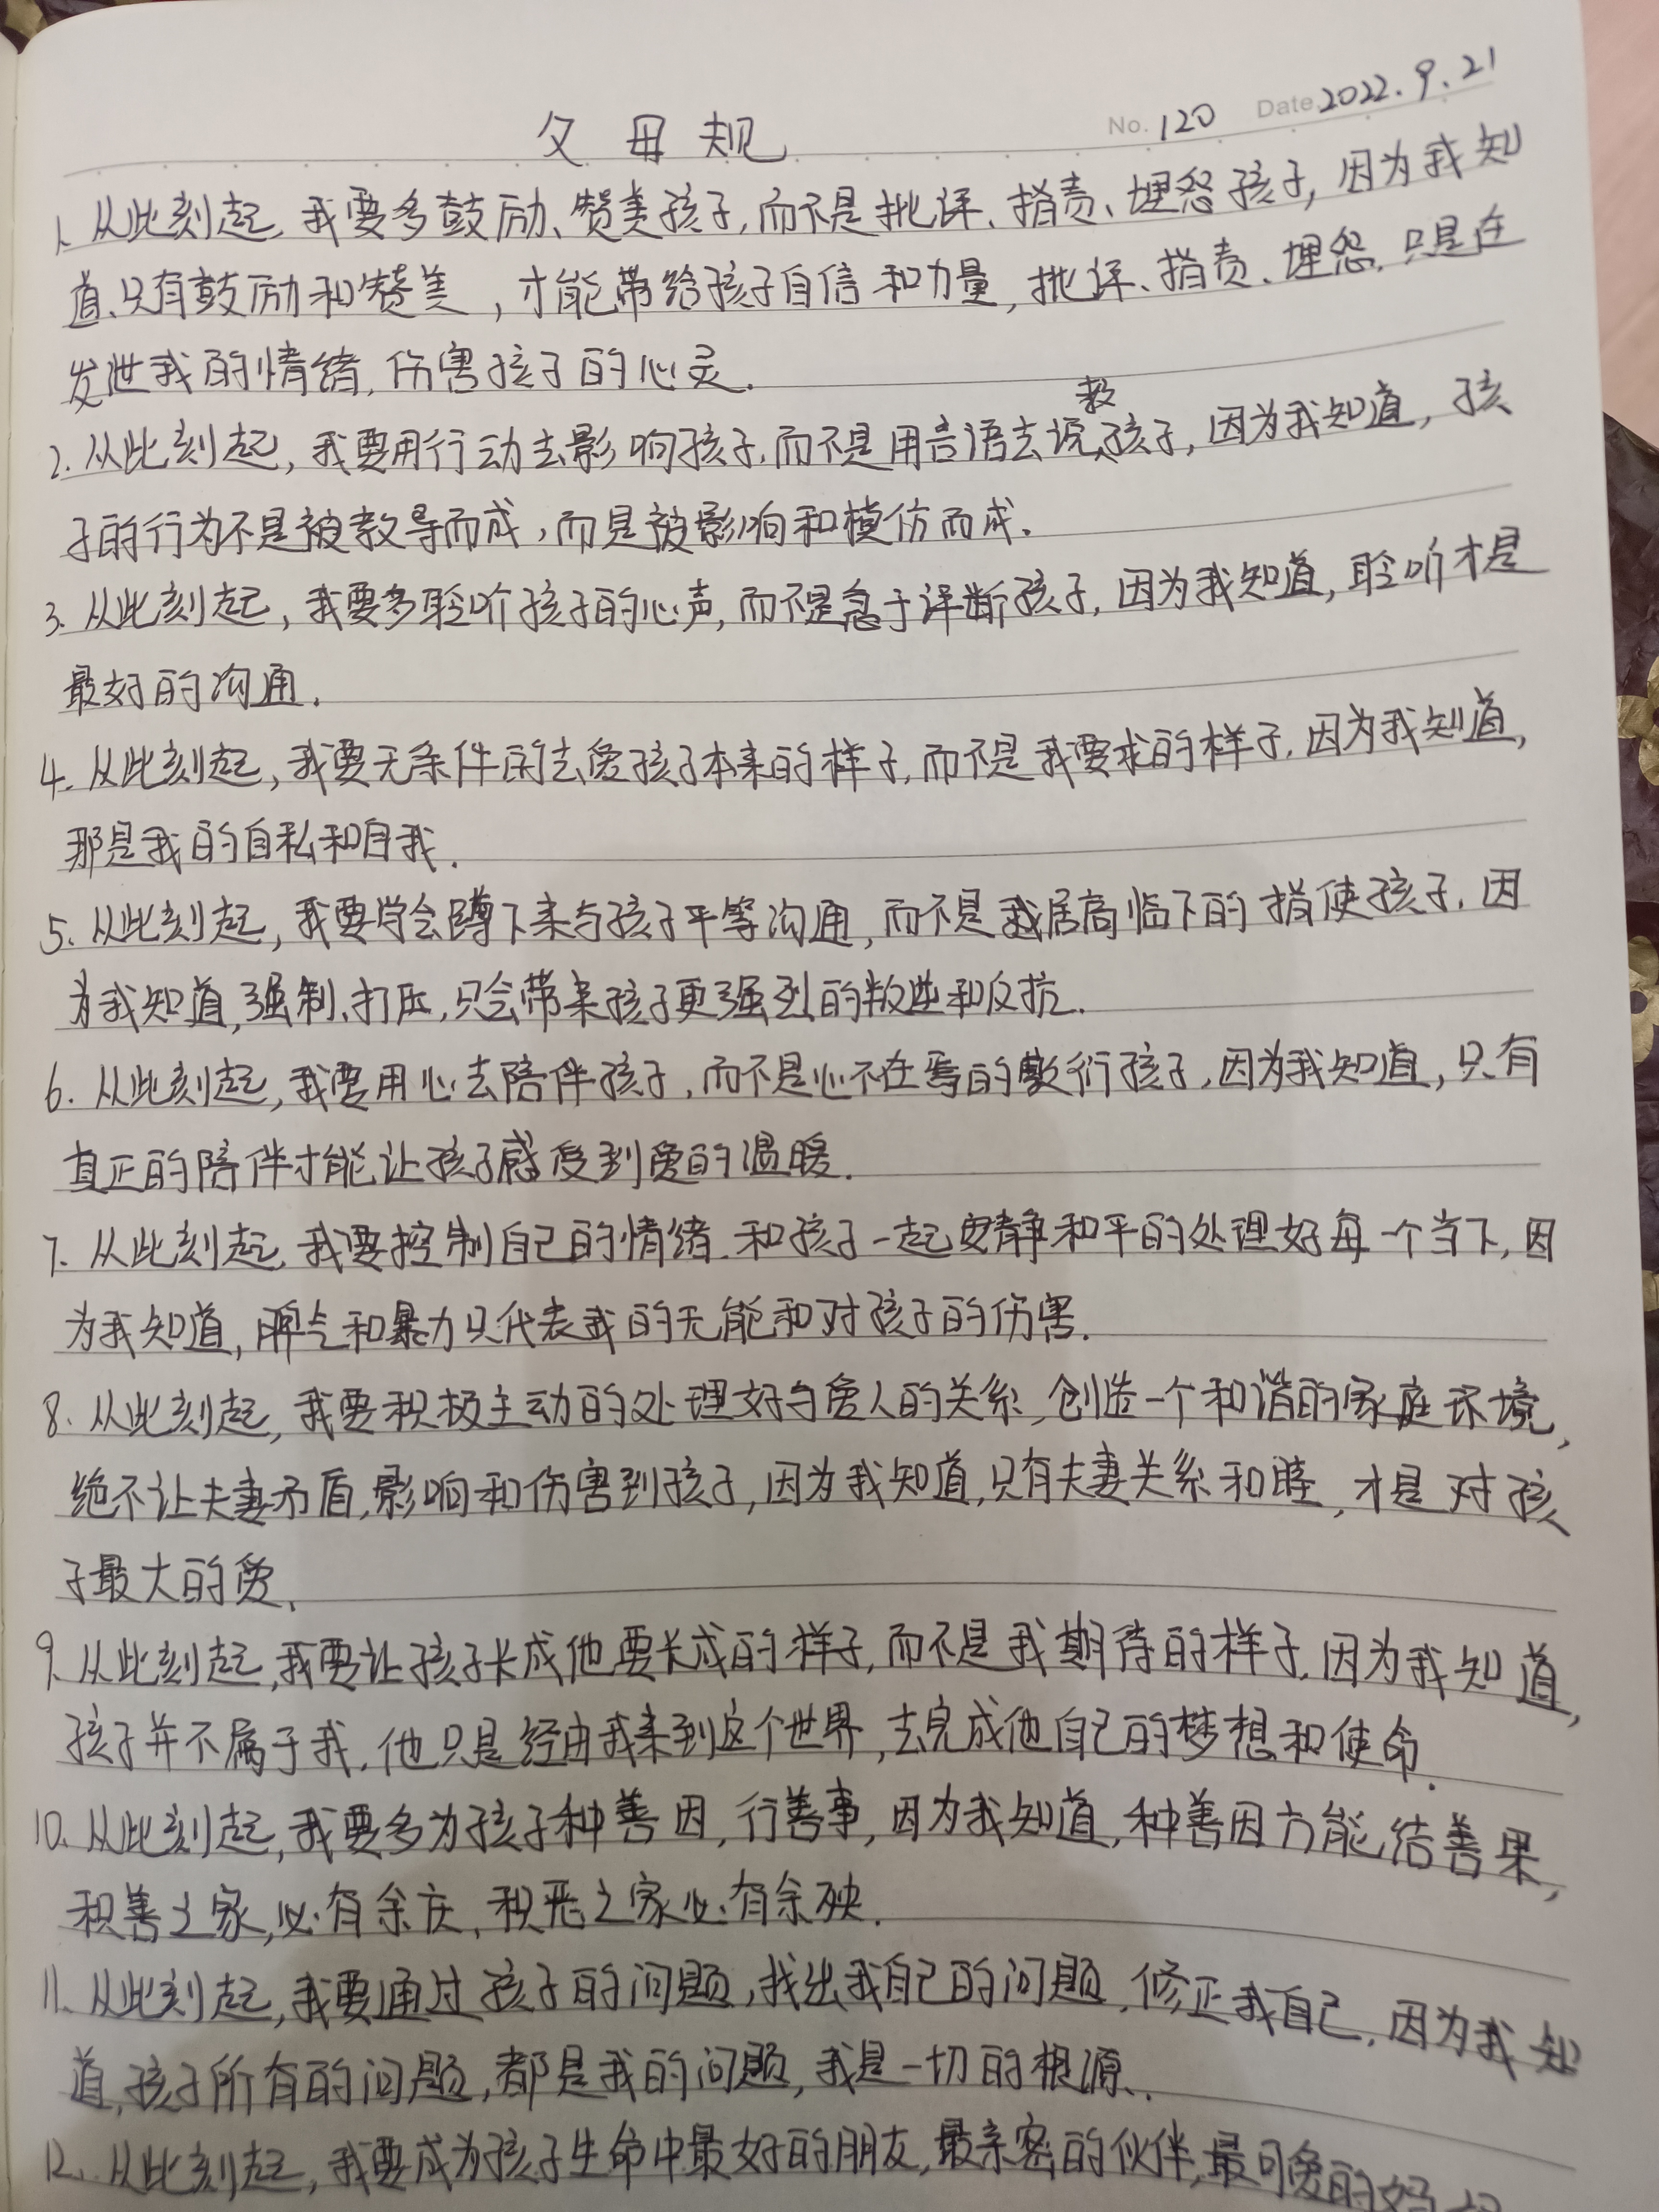 父母规
No. 120 Date 2022.9.21
1. 从此刻起,我要多鼓励、赞美孩子,而不是批评、指责、埋怨孩子,因为我知
道,只有鼓励和赞美,才能带给孩子自信和力量,批评、指责、埋怨,只是在
发泄我的情绪,伤害孩子的心灵.
2. 从此刻起,我要用行动去影响孩子,而不是用言语去说教孩子,因为我知道,孩
子的行为不是被教导而成,而是被影响和模仿而成.
3. 从此刻起,我要多聆听孩子的心声,而不是急于评断孩子,因为我知道,聆听才是
最好的沟通.
4. 从此刻起,我要无条件的去爱孩子本来的样子,而不是我要求的样子,因为我知道,
那是我的自私和自我.
5. 从此刻起,我要学会蹲下来与孩子平等沟通,而不是我居高临下的指使孩子,因
为我知道,强制、打压,只会带来孩子更强烈的叛逆和反抗.
6. 从此刻起,我要用心去陪伴孩子,而不是心不在焉的敷衍孩子,因为我知道,只有
真正的陪伴才能让孩子感受到爱的温暖.
7. 从此刻起,我要控制自己的情绪,和孩子一起安静和平的处理好每一个当下,因
为我知道,脾气和暴力只代表我的无能和对孩子的伤害.
8. 从此刻起,我要积极主动的处理好与爱人的关系,创造一个和谐的家庭环境,
绝不让夫妻矛盾,影响和伤害到孩子,因为我知道,只有夫妻关系和睦,才是对孩
子最大的爱、
9. 从此刻起,我要让孩子长成他要长成的样子,而不是我期待的样子,因为我知道,
孩子并不属于我,他只是经由我来到这个世界,去完成他自己的梦想和使命.
10. 从此刻起,我要多为孩子种善因,行善事,因为我知道,种善因方能结善果,
积善之家,必有余庆,积恶之家必有余殃.
11. 从此刻起,我要通过孩子的问题,找出我自己的问题,修正我自己,因为我知
道,孩子所有的问题,都是我的问题,我是一切的根源.
12. 从此刻起,我要成为孩子生命中最好的朋友,最亲密的伙伴,最可爱的妈